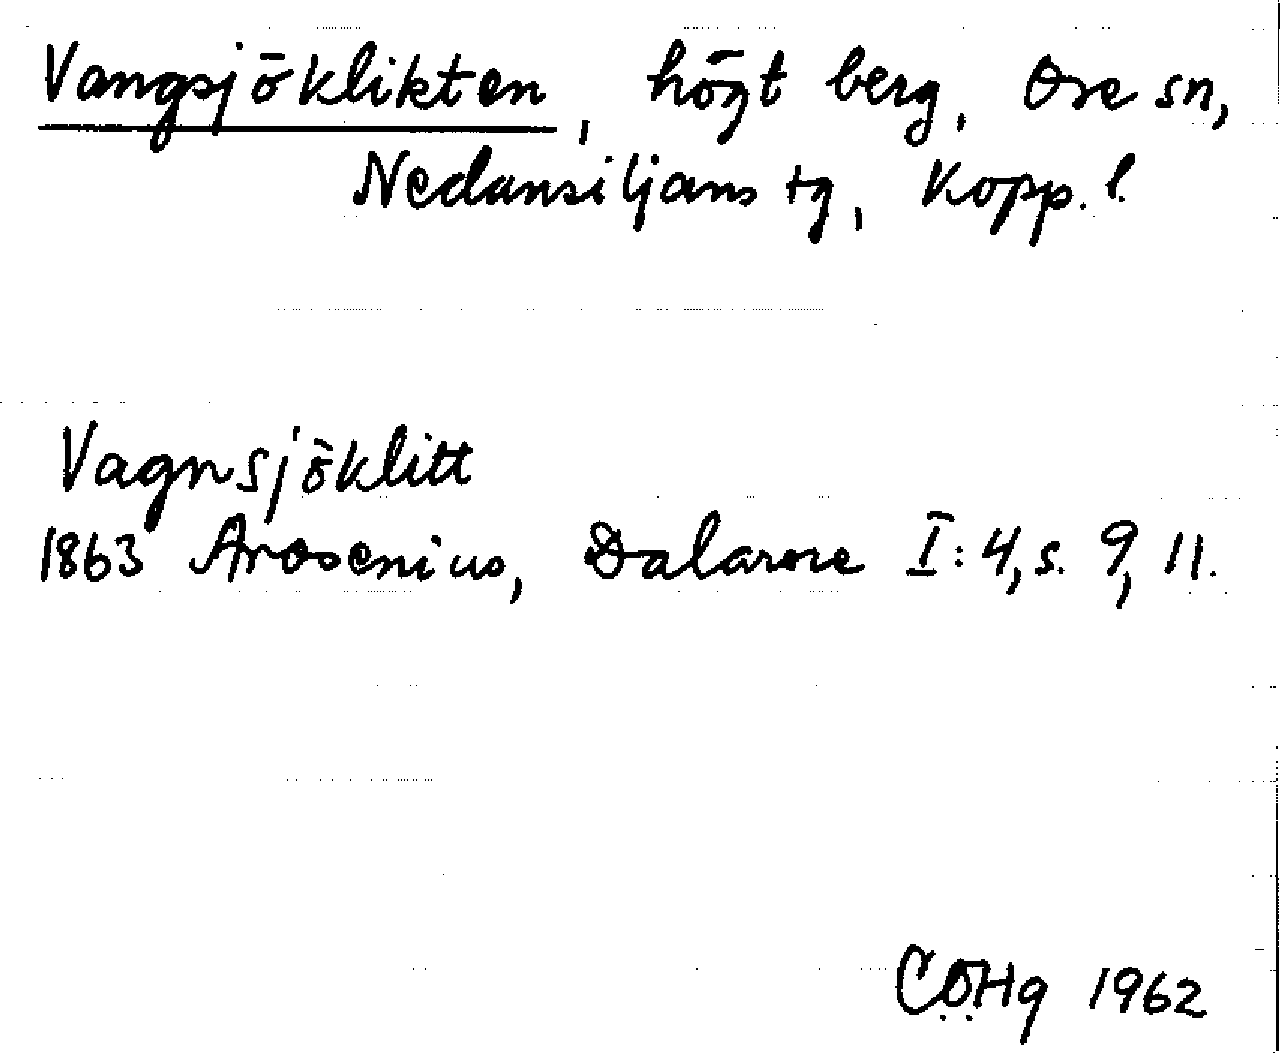 Vangsjöklikten, högt berg, Ore sn,
Nedansiljans tg, Kopp. l.
Vagnsjöklitt
1863 Arosenius, Dalarne I:4, s. 9, 11.
CÖHg 1962